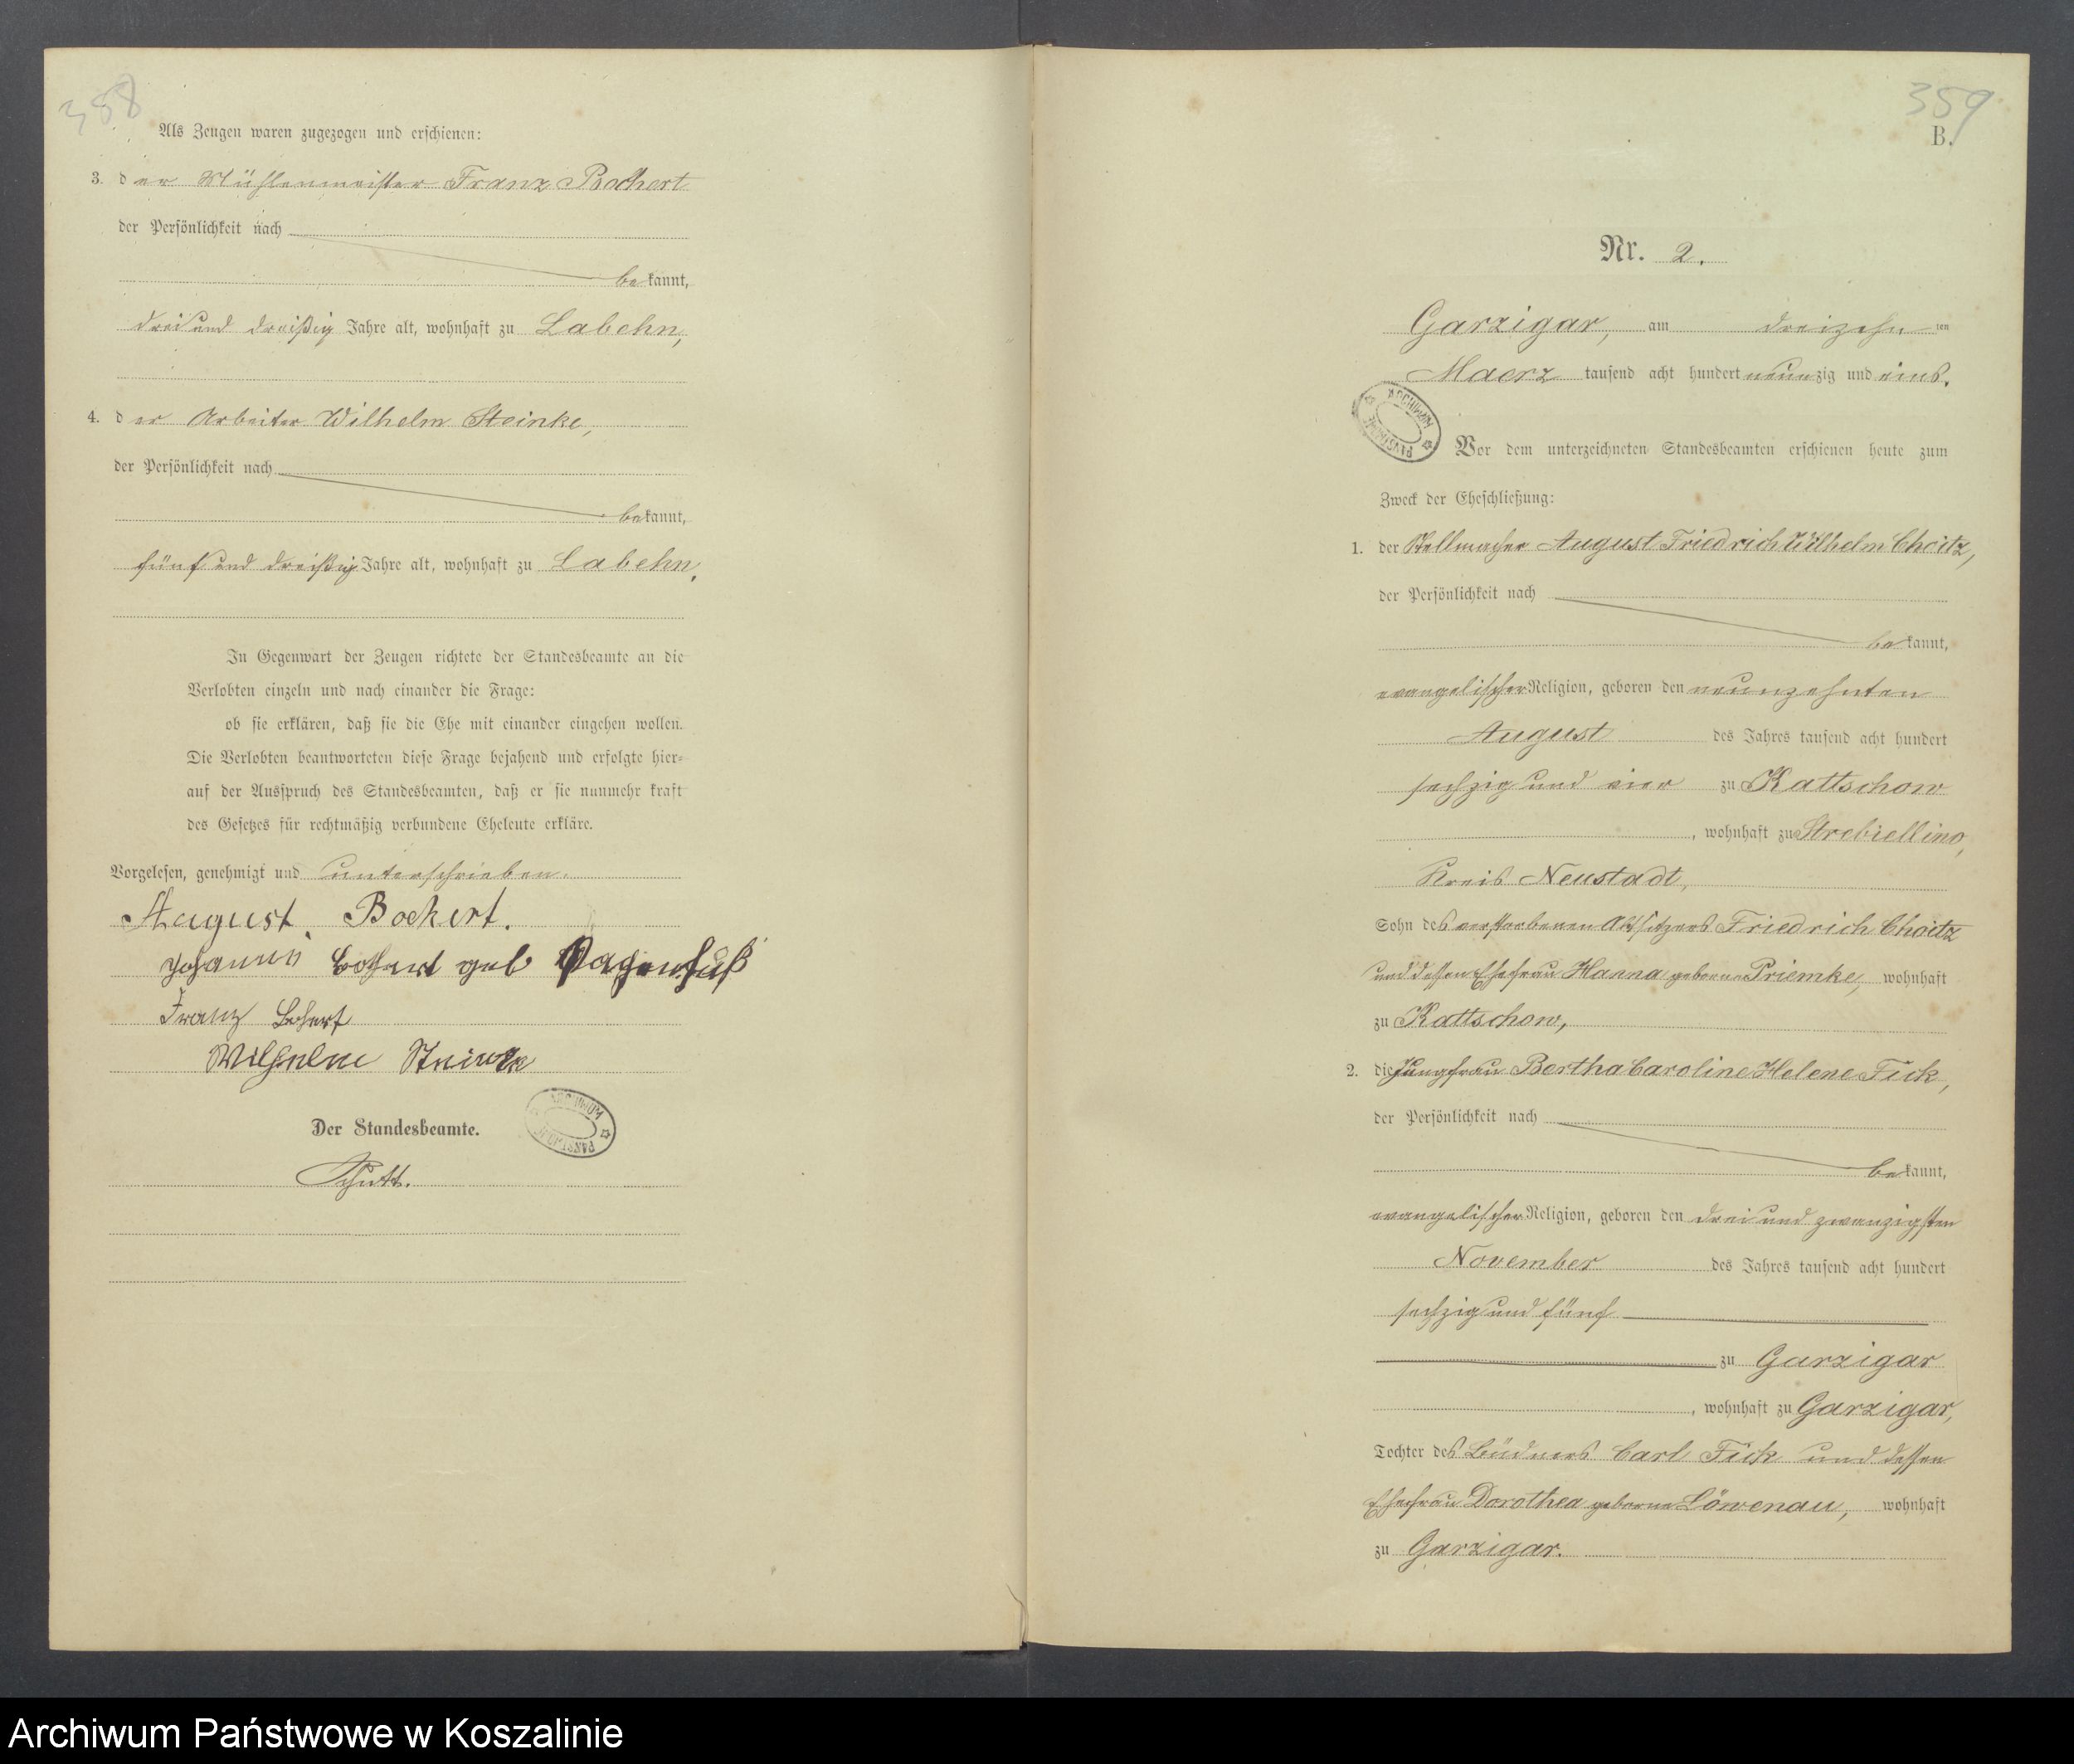 358
Als Zeugen waren zugezogen und erschienen:
3. der Mühlenmeister Franz Bochert
der Persönlichkeit nach
bekannt,
drei und dreißig Jahre alt, wohnhaft zu Labehn,
4. der Arbeiter Wilhelm Steinke,
der Persönlichkeit nach
bekannt,
fünf und dreißig Jahre alt, wohnhaft zu Labehn.
In Gegenwart der Zeugen richtete der Standesbeamte an die
Verlobten einzeln und nach einander die Frage:
ob sie erklären, daß sie die Ehe mit einander eingehen wollen.
Die Verlobten beantworteten diese Frage bejahend und erfolgte hier-
auf der Ausspruch des Standesbeamten, daß er sie nunmehr kraft
des Gesetzes für rechtmäßig verbundene Eheleute erkläre.
Vorgelesen, genehmigt und unterschrieben.
August Bochert.
Johanna Bochert geb Pagenfuß
Franz Bohert
Wilhelm Steinke
Der Standesbeamte.
359
B.
Nr. 2.
Garzigar, am dreizehnten
Maerz tausend acht hundert neunzig und eins.
Vor dem unterzeichneten Standesbeamten erschienen heute zum
Zweck der Eheschließung:
1. der Stellmacher August Friedrich Wilhelm Choitz,
der Persönlichkeit nach
bekannt,
evangelischer Religion, geboren den neunzehnten
August des Jahres tausend acht hundert
sechzig und vier zu Kattschow
, wohnhaft zu Strebiellino,
Kreis Neustadt,
Sohn des verstorbenen Altsitzers Friedrich Choitz
und dessen Ehefrau Hanna geborne Priemke, wohnhaft
zu Kattschow,
2. die Jungfrau Bertha Caroline Helene Fick,
der Persönlichkeit nach
bekannt,
evangelischer Religion, geboren den drei und zwanzigsten
November des Jahres tausend acht hundert
sechzig und fünf
zu Garzigar
, wohnhaft zu Garzigar,
Tochter des Büdners Carl Fick und dessen
Ehefrau Dorothea geborne Löwenau, wohnhaft
zu Garzigar.
Archiwum Państwowe w Koszalinie